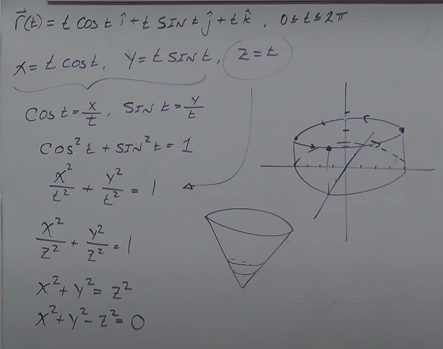 r⃗(t) = t cos t î + t SIN t ĵ + t k̂ , 0 ≤ t ≤ 2π
x = t cos t, y = t SIN t, z = t
cos t = x/t , SIN t = y/t
cos² t + SIN² t = 1
x²/t² + y²/t² = 1
x²/z² + y²/z² = 1
x² + y² = z²
x² + y² - z² = 0